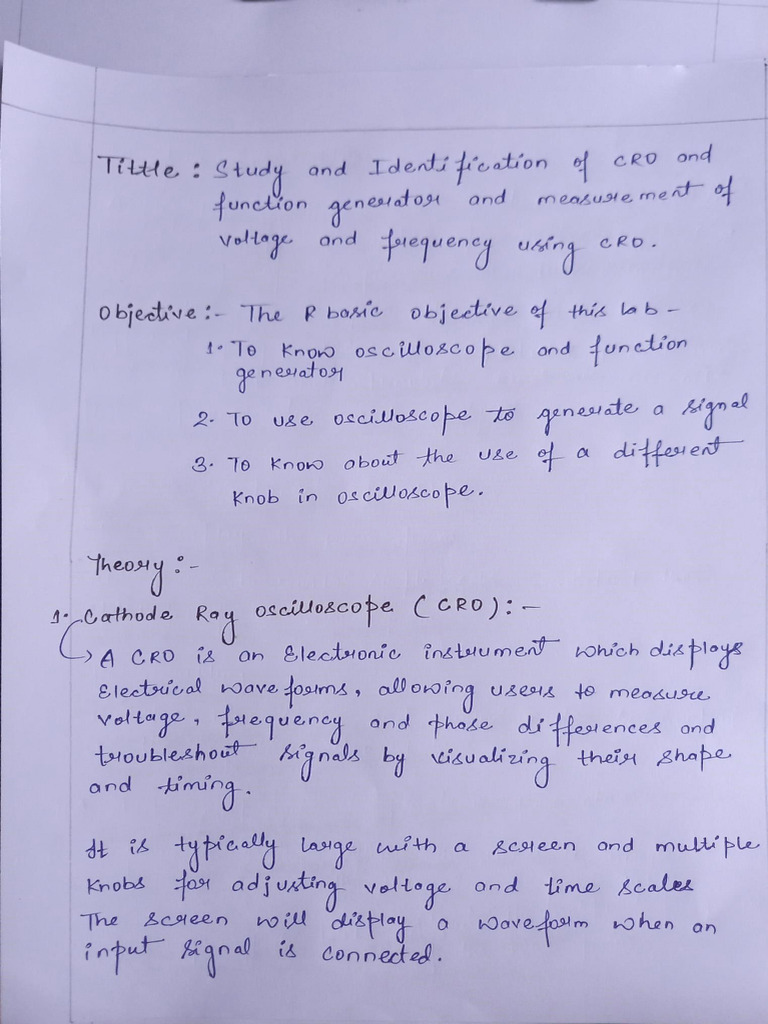 Tittle : Study and Identification of CRO and
function generator and measurement of
voltage and frequency using CRO.
Objective :- The R basic objective of this lab -
1. To know oscilloscope and function
generator
2. To use oscilloscope to generate a signal
3. To know about the use of a different
Knob in oscilloscope.
Theory :-
1. Cathode Ray oscilloscope (CRO) :-
→ A CRO is an Electronic instrument which displays
Electrical waveforms, allowing users to measure
voltage, frequency and phase differences and
troubleshout signals by visualizing their shape
and timing.
It is typically large with a screen and multiple
Knobs for adjusting voltage and time scales
The screen will display a waveform when an
input signal is connected.